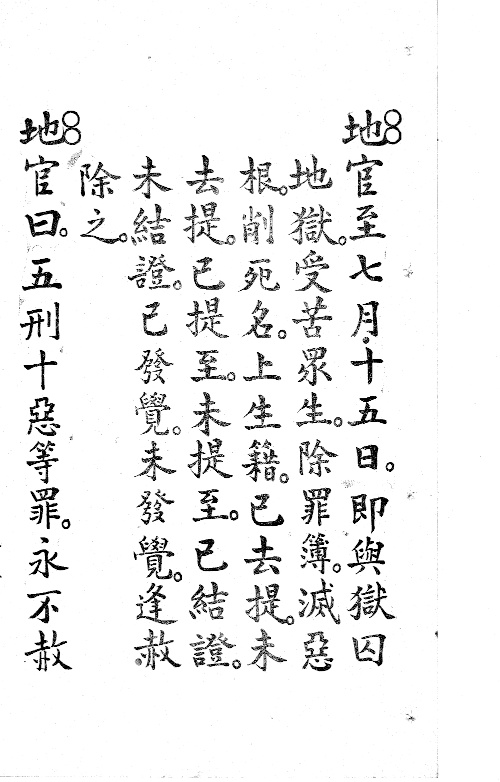 地官至七月十五日。即與獄囚
地獄。受苦眾生。除罪簿。滅惡
根。削死名。上生籍。已去提。未
去提。已提至。未提至。已結證。
未結證。已發覺。未發覺。逢赦
除之。
地官曰。五刑十惡等罪。永不赦